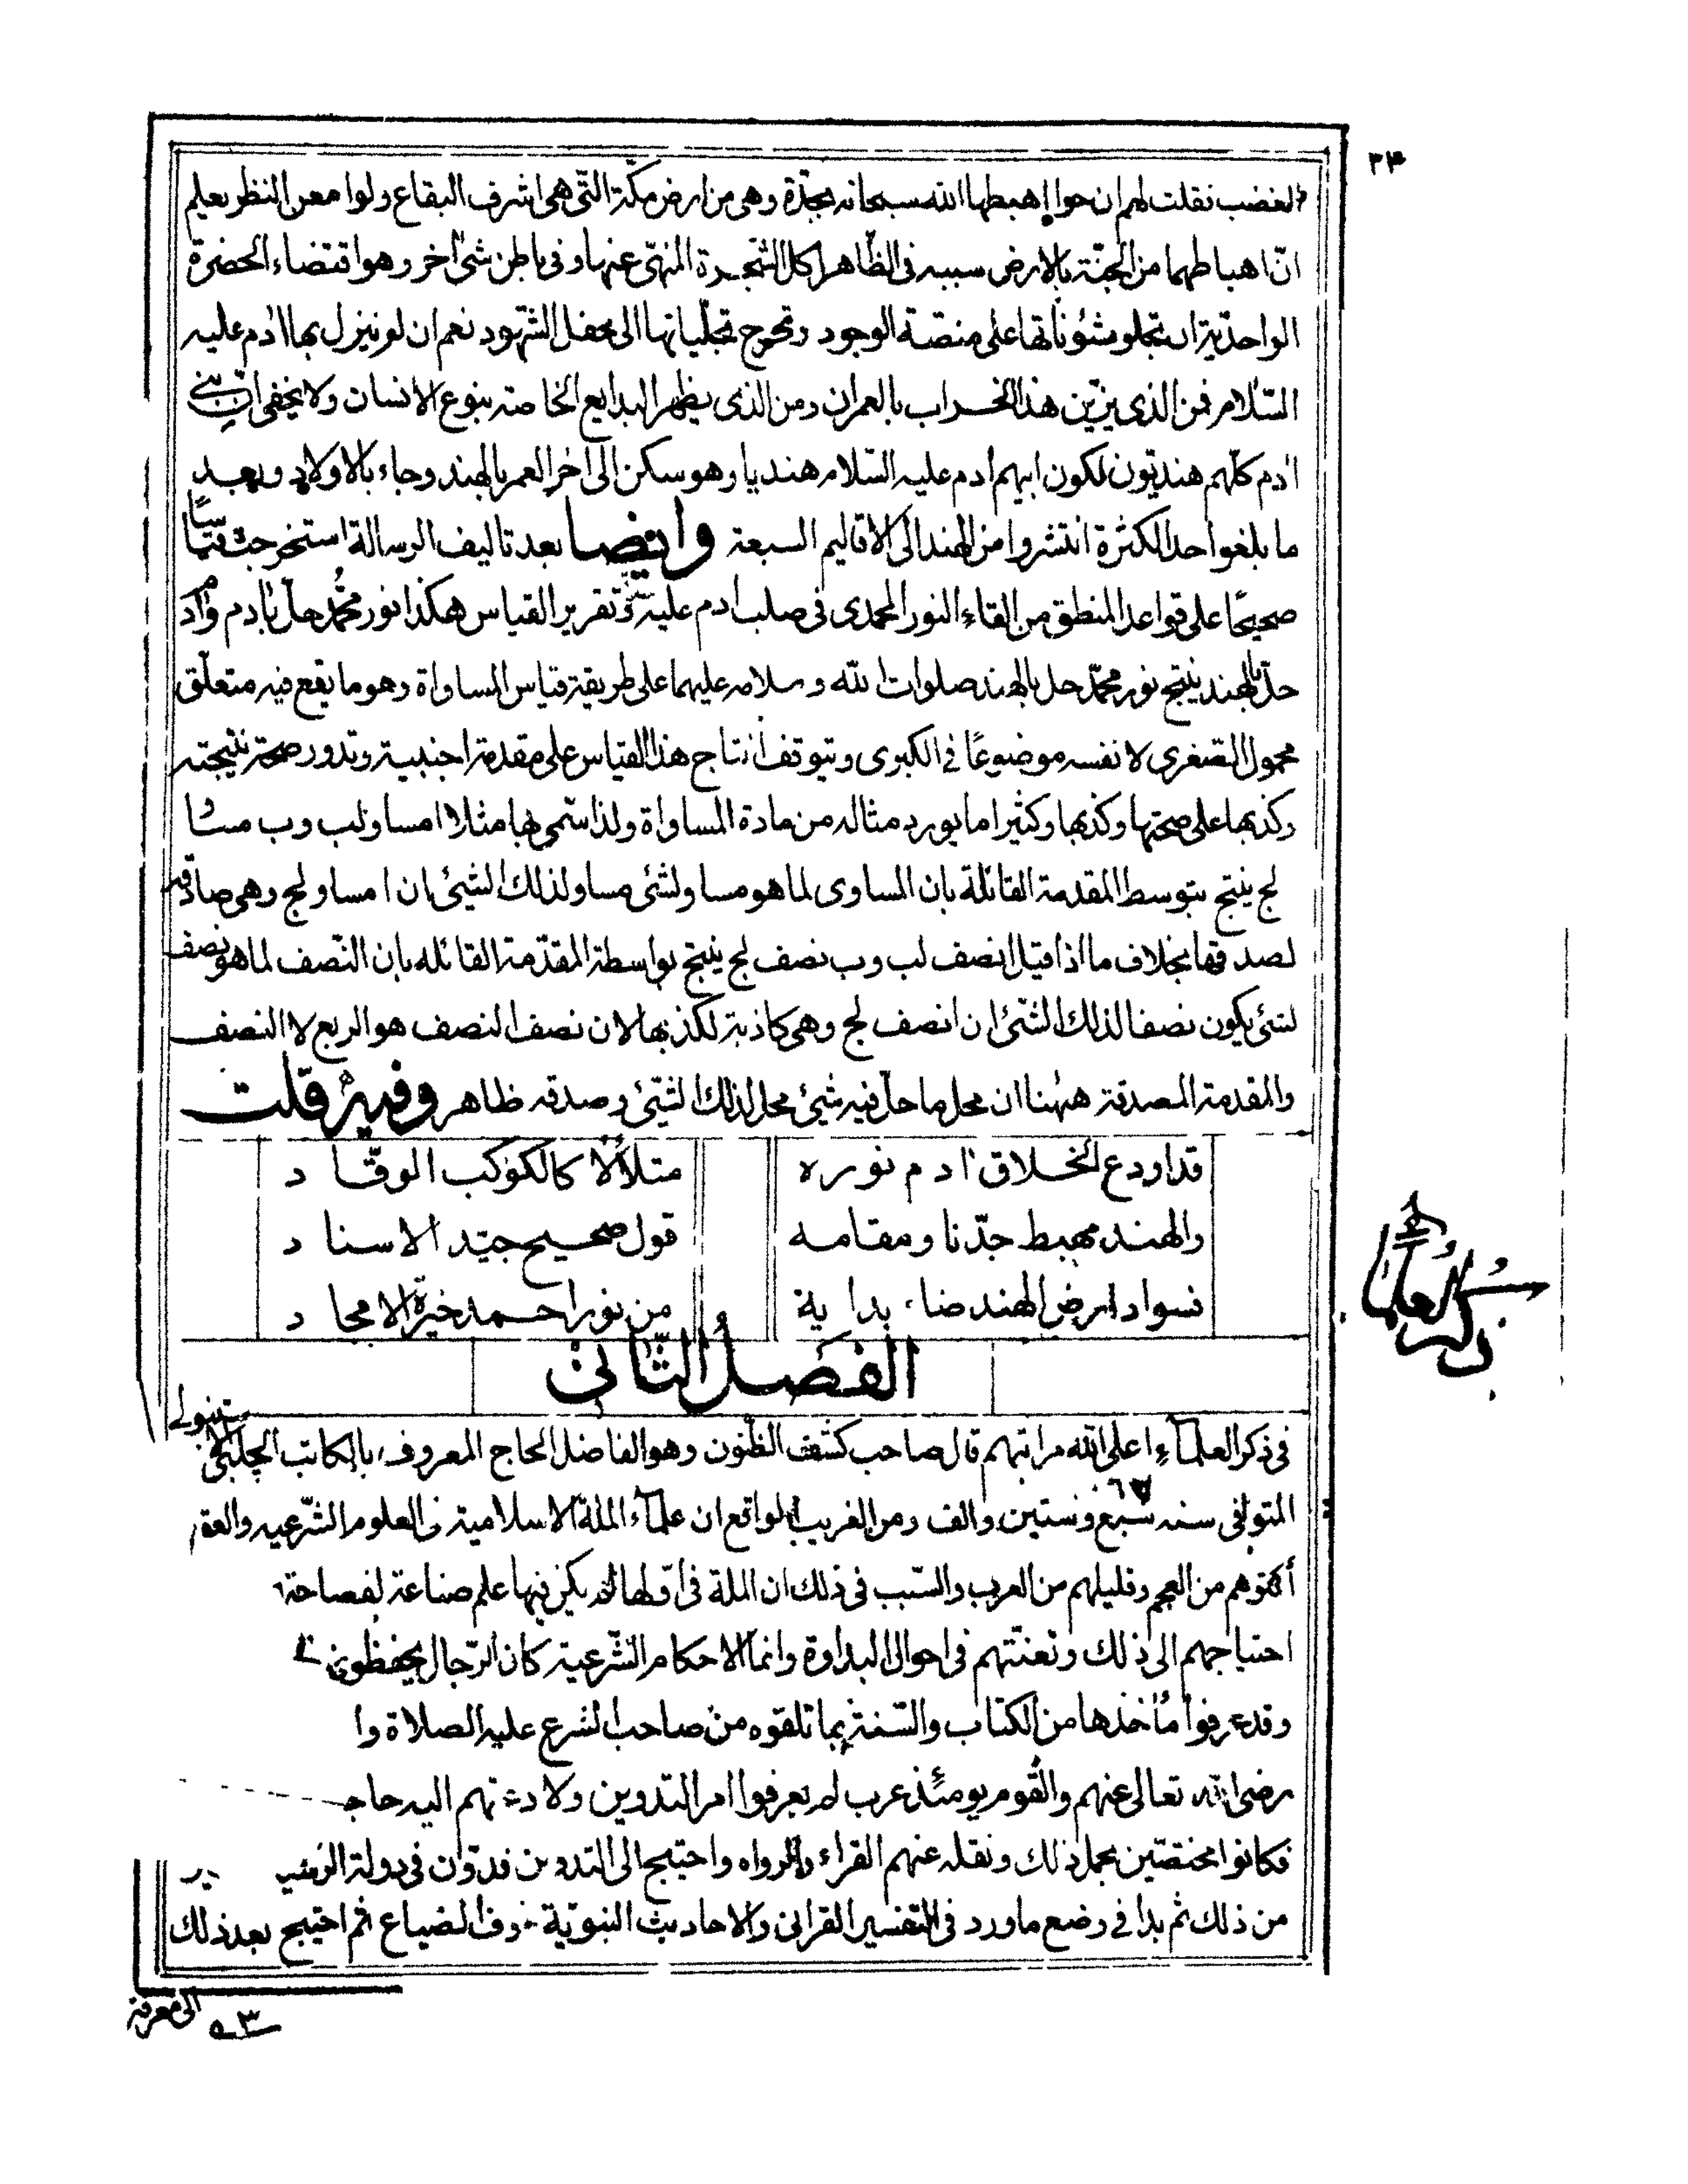 ۳۴
والغضب فقلت لهم ان حوا اهبطها الله سبحانه بجدّة وهى من ارض مكّة التّى هى اشرف البقاع ولو امعن النظر يعلم
انّ اهباطهما من الجنّة بالارض سببه فى الظّاهر اكل الشّجرة المنهىّ عنها وفى باطن شئ اٰخر وهو اقتضاء الحضرة
الواحديّة ان تجلو شئوناتها على منصّة الوجود وتخرج تجلّياتها الى محفل الشّهود نعم ان لم ينزل بها اٰدم عليه
السّلام فمن الذى يزيّن هذا الخراب بالعمران ومن الذى يظهر البدايع الخاصة بنوع الانسان ولا يخفى انّ بنى
اٰدم كلّهم هنديّون لكون ابيهم اٰدم عليه السّلام هنديا وهو سكن الى اٰخر العمر بالهند وجاء بالاولاد وبعد
ما بلغوا حد الكثرة انتشروا من الهند الى الاقاليم السبعة وايضا بعد تاليف الرسالة استخرجت قياسًا
صحيحًا على قواعد المنطق من القاء النور المحمدى فى صلب اٰدم عليه وتقرير القياس هكذا نور محمّد حلّ باٰدم واٰدم
حلّ بالهند ينتج نور محمّد حل بالهند صلوات الله وسلامه عليهما على طريقة قياس المساواة وهو ما يقع فيه متعلّق
محمول الصّغرى لا نفسه موضوعًا فى الكبرى ويتوقف انتاج هذا القياس على مقدمة اجنبية وتدور صحة نتيجته
وكذبها على صحتها وكذبها وكثيرا ما يورد مثاله من مادة المساواة ولذا سمّى بها مثلا ا مساو لب وب مساو
لج ينتج بتوسط المقدمة القائلة بان المساوى لما هو مساو لشئ مساو لذلك الشيئ ان ا مساو لج وهى صادقة
لصدقها بخلاف ما اذا قيل ا نصف لب وب نصف لج ينتج بواسطة المقدّمة القائله بان النّصف لما هو نصف
لشئ يكون نصفا لذلك الشّئ ان ا نصف لج وهى كاذبة لكذبها لان نصف النصف هو الربع لا النصف
والمقدمة المصدقة ههنا ان محل ما حلّ فيه شئ محل لذلك الشّئ وصدقه ظاهر وفيه قلت
قد اودع الخلاق اٰدم نوره متلألأ كالكوكب الوقّاد
والهند مهبط جدّنا ومقامه قول صحيح جيّد الاسناد
فسواد ارض الهند ضاء بداية من نور احمد خيرة الامجاد
ذكر العلماء
الفصل الثّانى
فى ذكر العلماء اعلى الله مراتبهم قال صاحب كشف الظّنون وهو الفاضل الحاج المعروف بالكاتب الچلبى
المتوفى سنه سبع وستين والف ومن الغريب الواقع ان علماء الملة الاسلامية فى العلوم الشّرعيه والعق
أكثرهم من العجم وقليلهم من العرب والسّبب فى ذلك ان الملة فى اوّلها لم يكن فيها علم صناعة لفصاحة
احتياجهم الى ذلك وتعنّتهم فى احوالى البداوة وانما الاحكام الشّرعية كان الرّجال يحفظونها
وقد عرفوا مأخذها من الكتاب والسّنة بما تلقوه من صاحب الشرع عليه الصلاة وا
رضى الله تعالى عنهم والقوم يومئذ عرب لم يعرفوا امر التدوين ولا دعتهم اليه حاجـ
فكانوا مختصّين بحمل ذلك ونقله عنهم القراء والرواه واحتيج الى التدوين فدوّن فى دولة الرشيد
من ذلك ثم بدا فى وضع ما ورد فى التفسير القرانى والاحاديث النبويّة خوف الضياع ثم احتيج بعد ذلك
الى معرفة
۵۳